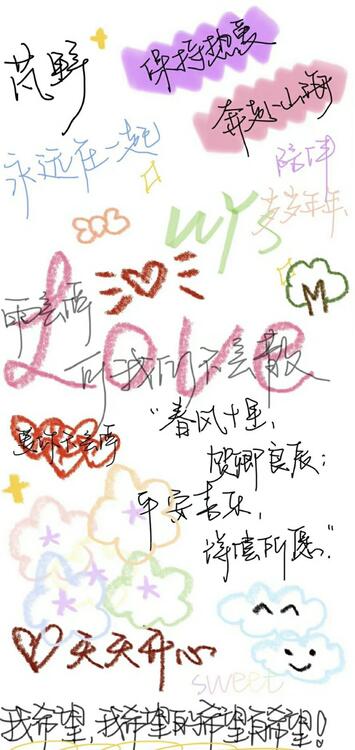 芃野
保持热爱
奔赴山海
永远在一起
陪伴
岁岁年年
WYS
M
雨会雨
Love
可我们不会散
夏
不会雨
"春风十里,
贺卿良辰;
平安喜乐,
得偿所愿."
天天开心
sweet
我希望,我希望的希望有希望!